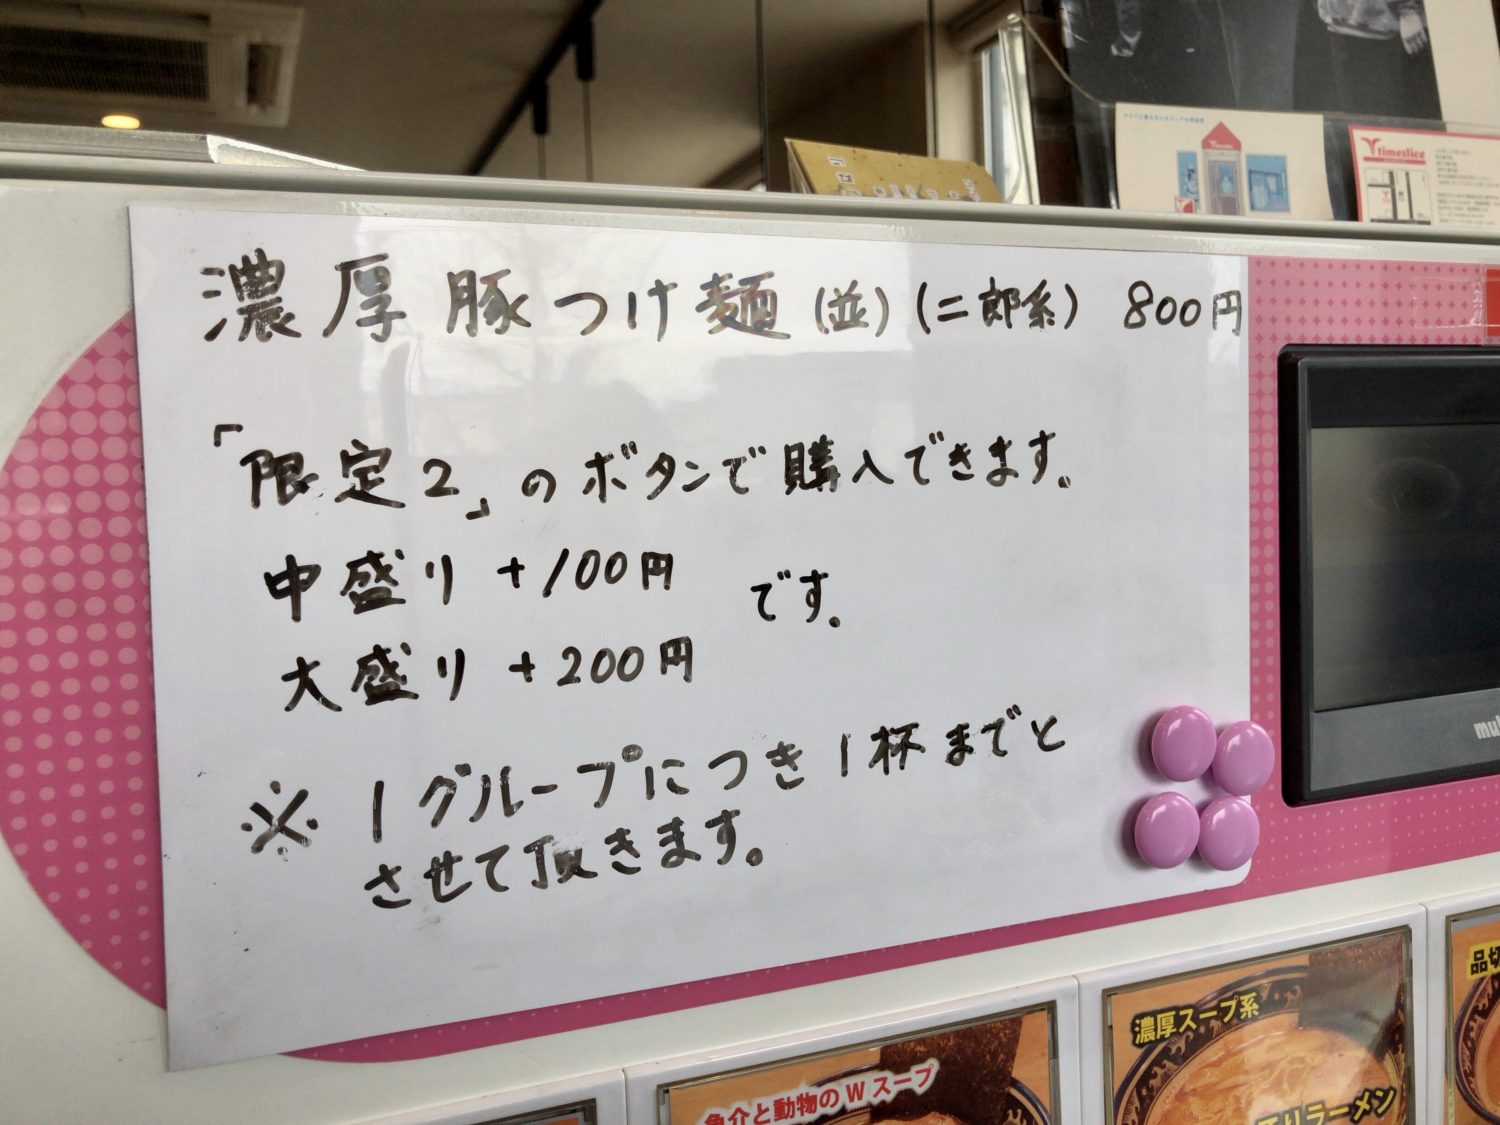 timeslice
濃厚豚つけ麺(並)(二郎系) 800円
「限定2」のボタンで購入できます。
中盛り +100円
です。
大盛り +200円
※ 1グループにつき1杯までと
させて頂きます。
濃厚スープ系
魚介と動物のWスープ